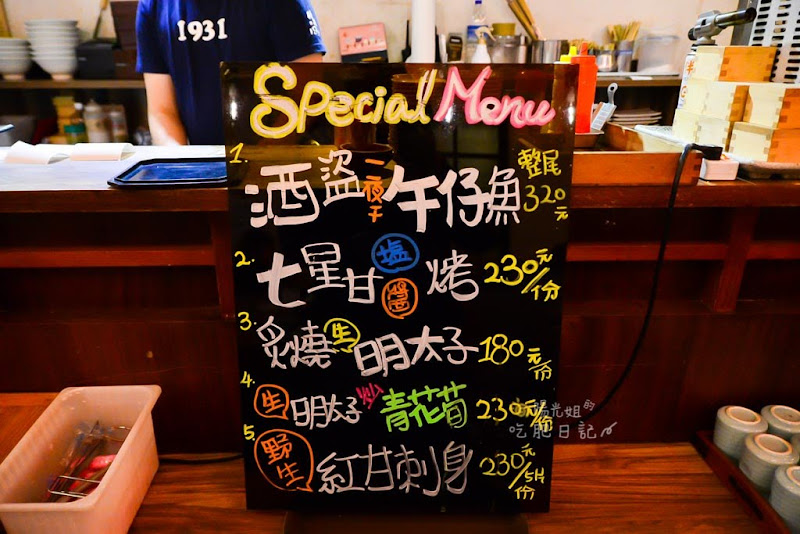 1931
Special Menu
1. 酒盜一夜干午仔魚 整尾 320元
2. 七星甘 塩 醬 烤 230元/份
3. 炙燒生明太子 180元/份
4. 生明太子炒青花筍 230元/份
5. 野生紅甘刺身 230元/5片份
陽光姐的
吃肥日記